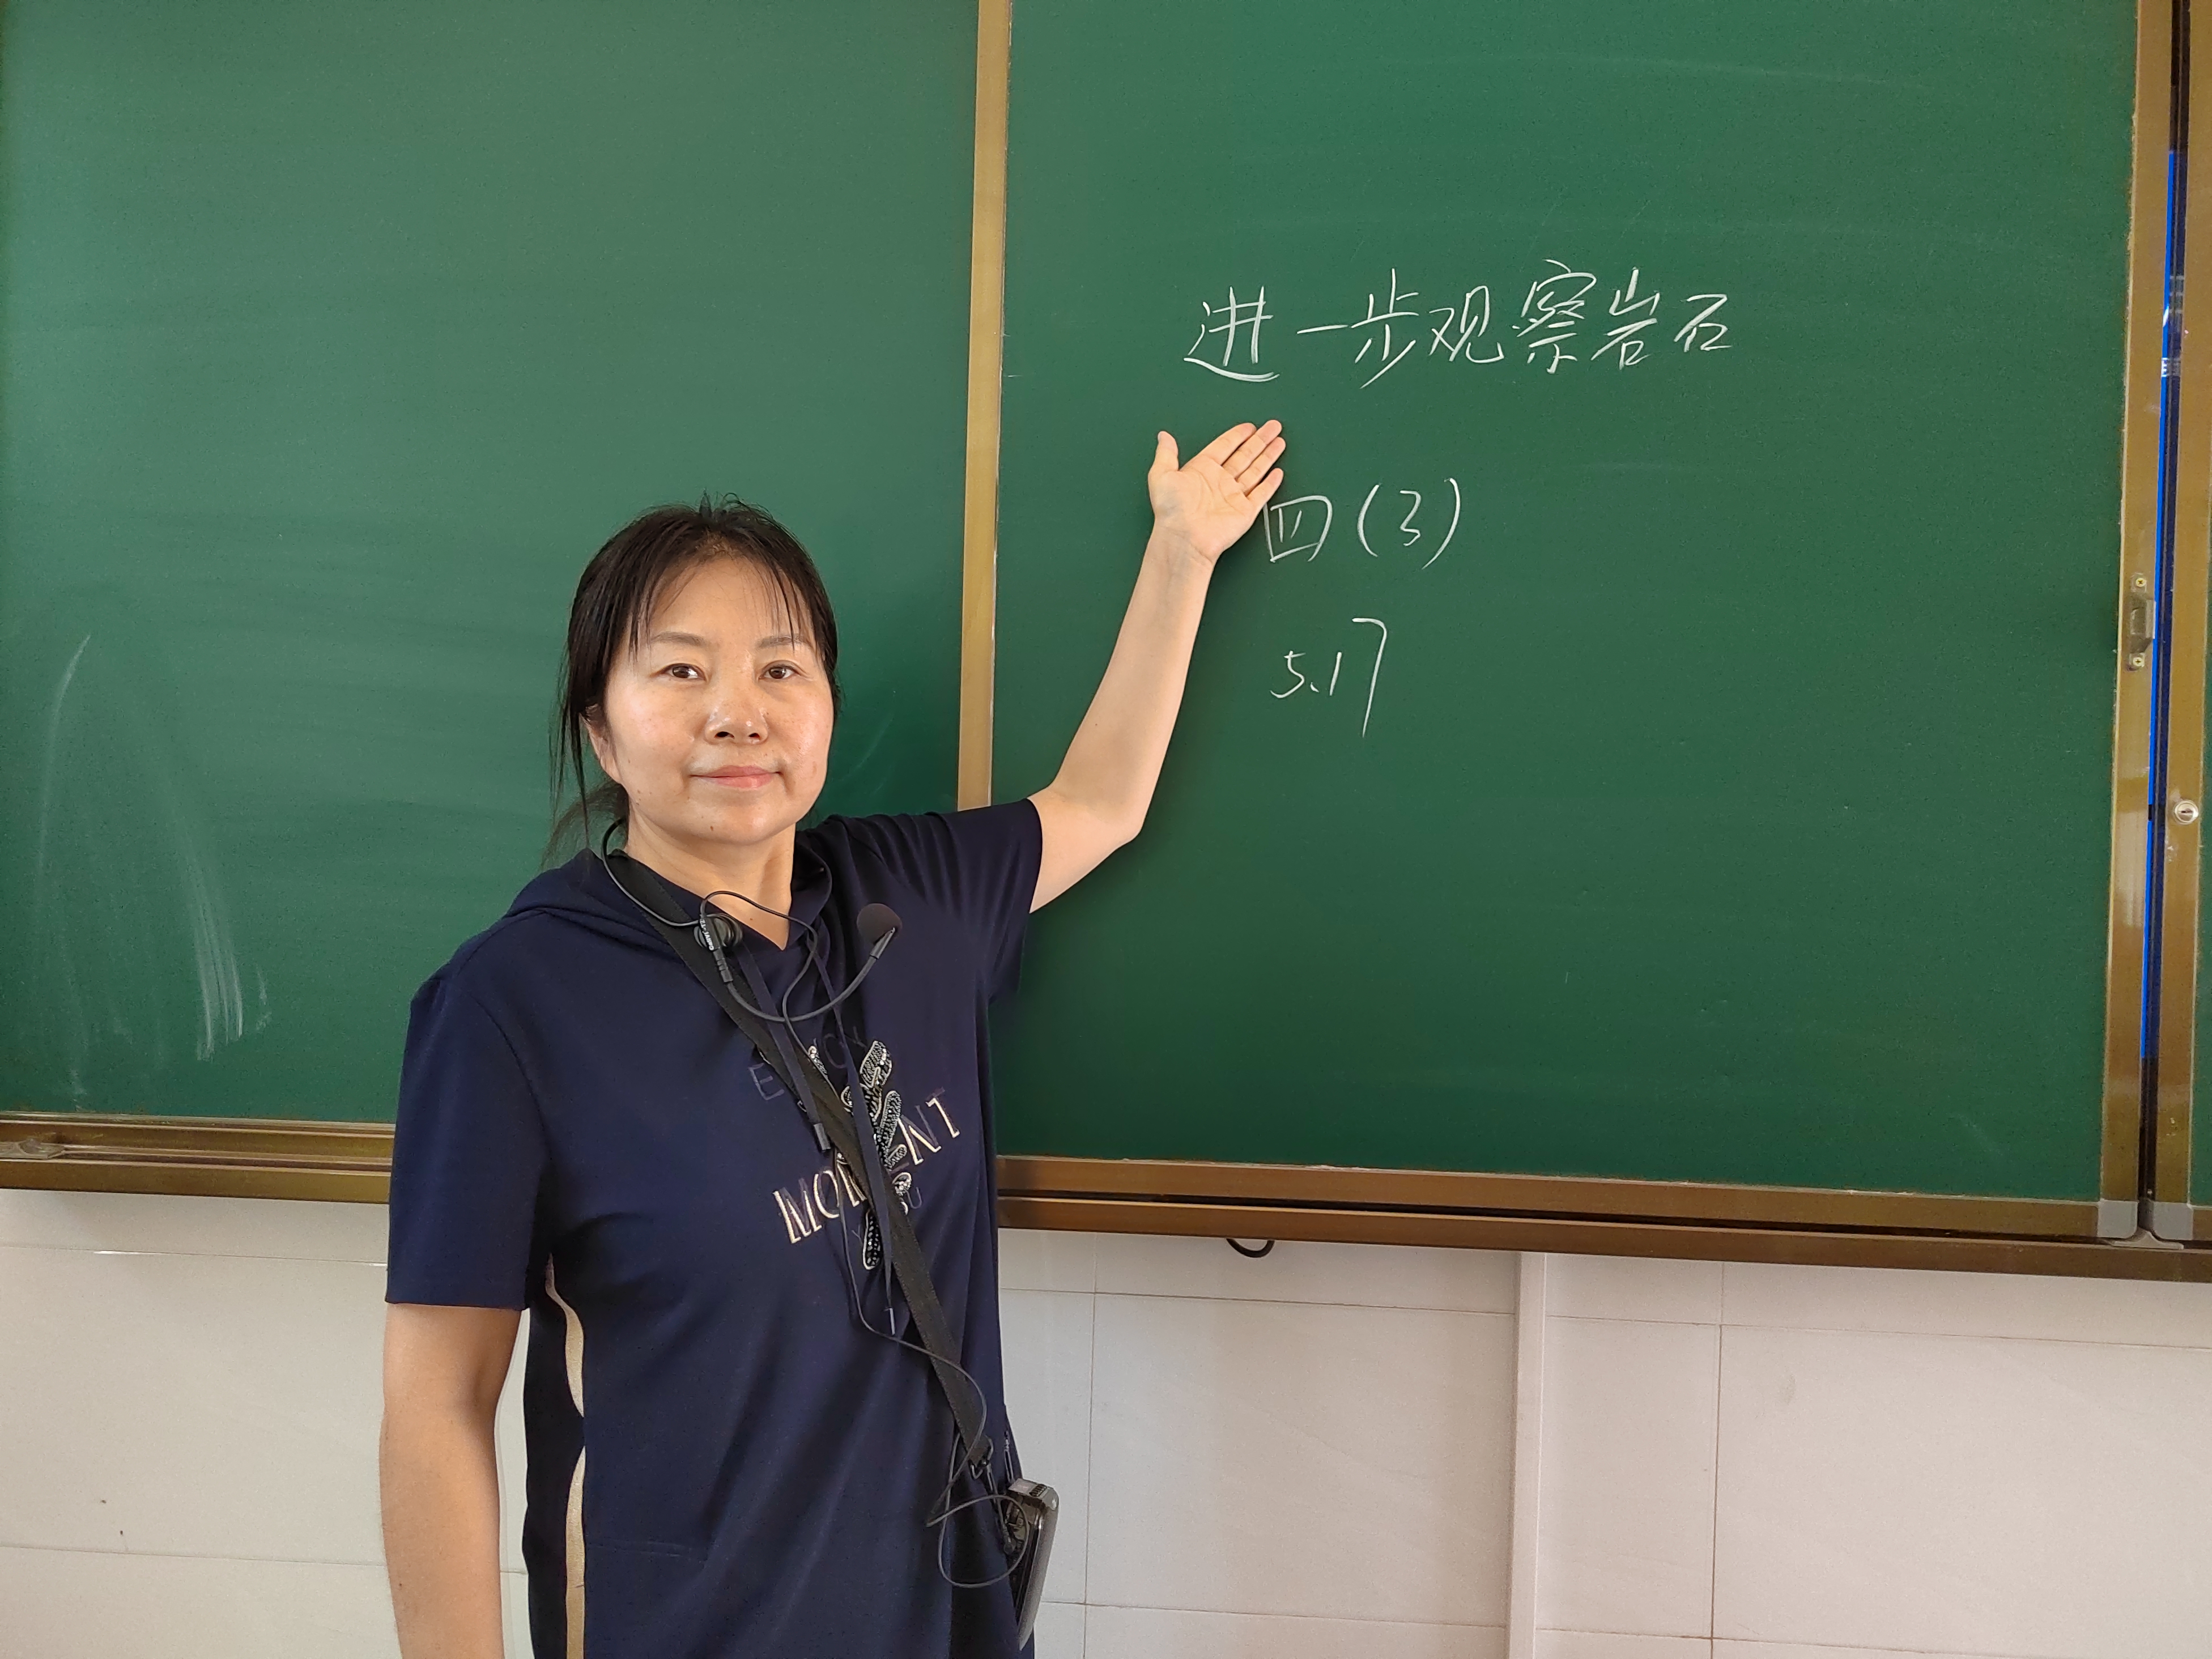 进一步观察岩石
四(3)
5.17
MOMENT